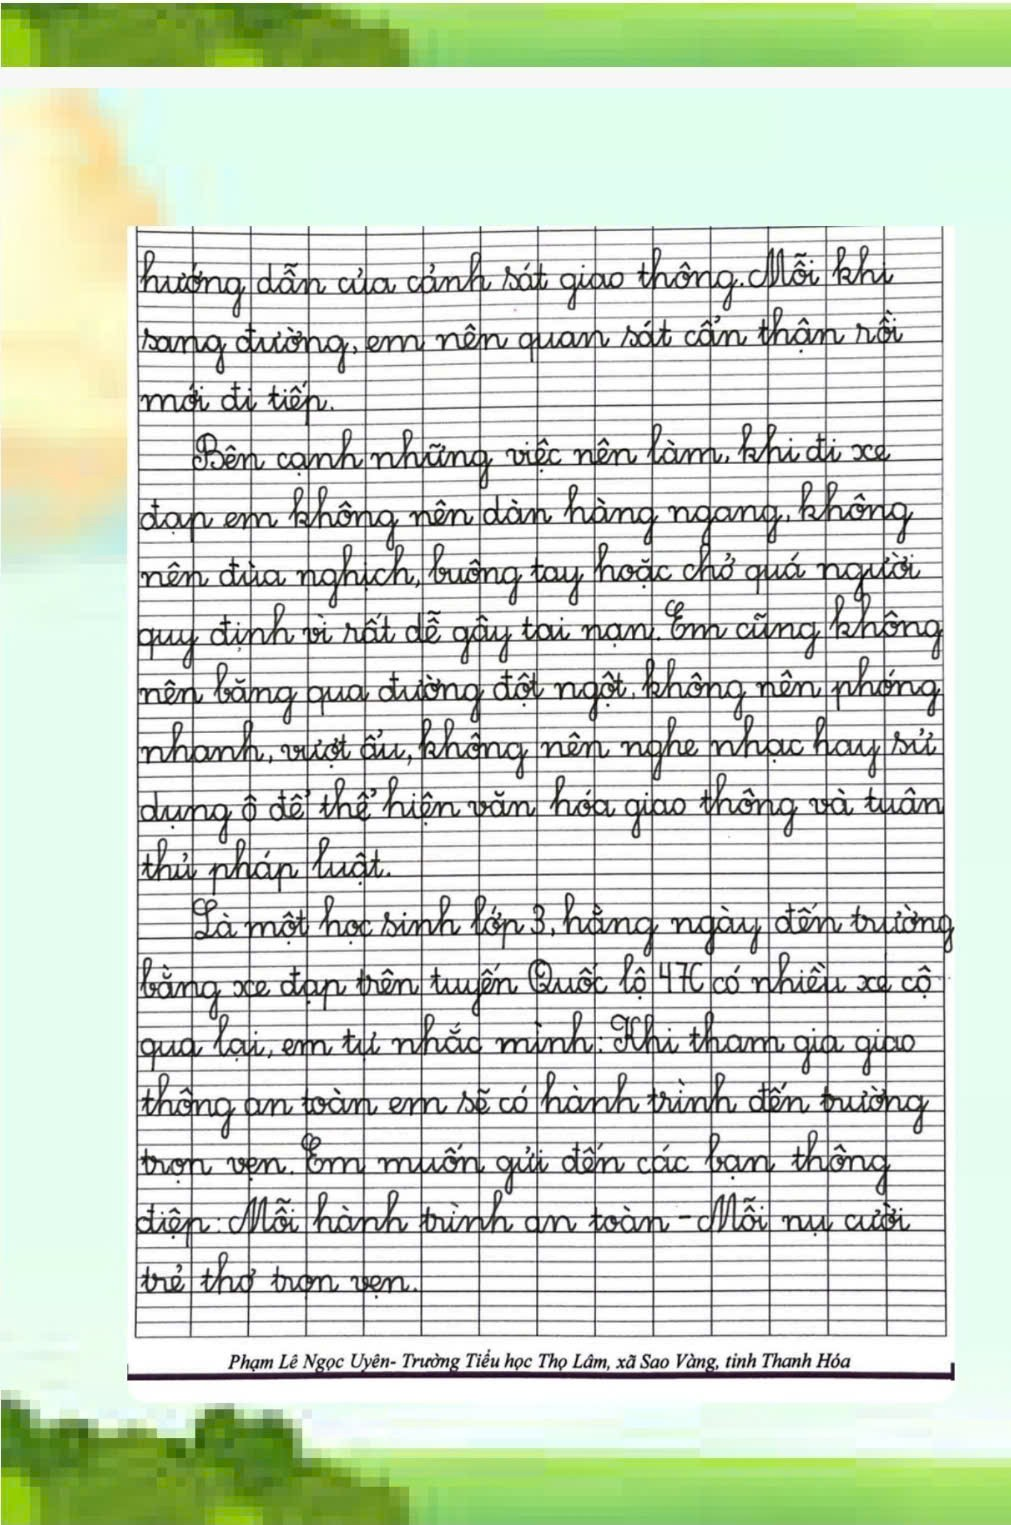 hướng dẫn của cảnh sát giao thông. Mỗi khi
sang đường, em nên quan sát cẩn thận rồi
mới đi tiếp.
Bên cạnh những việc nên làm, khi đi xe
đạp em không nên dàn hàng ngang, không
nên đùa nghịch, buông tay hoặc chở quá người
quy định vì rất dễ gây tai nạn. Em cũng không
nên băng qua đường đột ngột, không nên phóng
nhanh, vượt ẩu, không nên nghe nhạc hay sử
dụng ô để thể hiện văn hóa giao thông và tuân
thủ pháp luật.
Là một học sinh lớp 3, hằng ngày đến trường
bằng xe đạp trên tuyến Quốc lộ 47C có nhiều xe cộ
qua lại, em tự nhắc mình: Khi tham gia giao
thông an toàn em sẽ có hành trình đến trường
trọn vẹn. Em muốn gửi đến các bạn thông
điệp: Mỗi hành trình an toàn - Mỗi nụ cười
trẻ thơ trọn vẹn.
Phạm Lê Ngọc Uyên- Trường Tiểu học Thọ Lâm, xã Sao Vàng, tỉnh Thanh Hóa